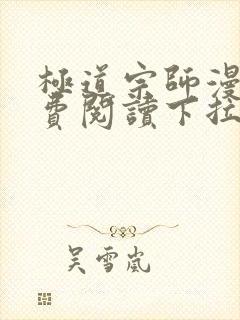 極道宗師漫
費閱讀下拉
吴雪嵐